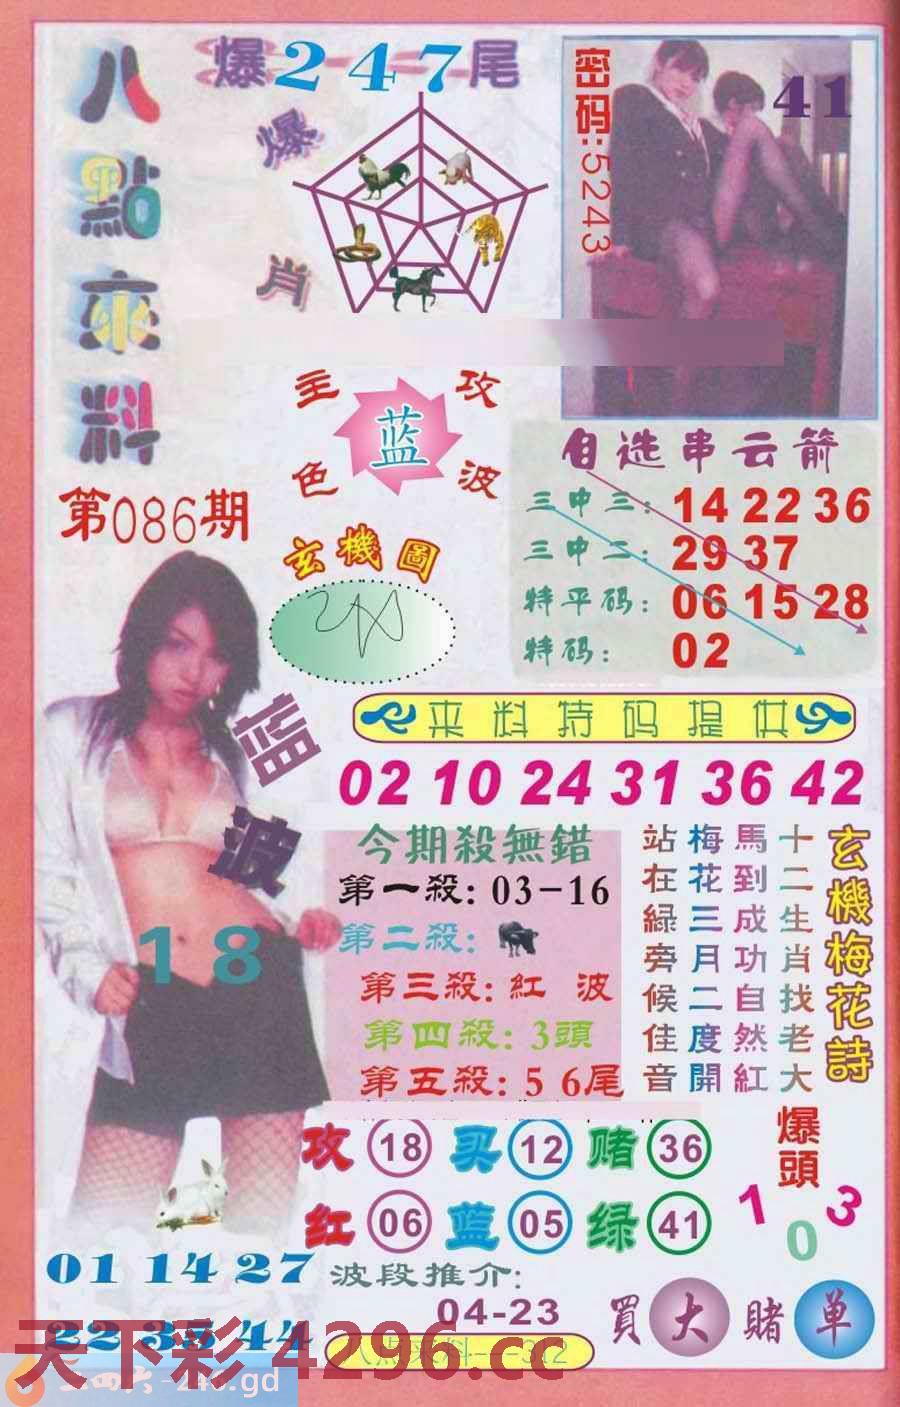 八點來料
爆247尾
爆肖
密码:5243
41
主攻
蓝
色波
第086期
玄機圖
自选串云箭
三中三: 14 22 36
三中二: 29 37
特平码: 06 15 28
特码: 02
来料特码提供
02 10 24 31 36 42
蓝波
18
今期殺無錯
第一殺: 03-16
第二殺:
第三殺: 紅 波
第四殺: 3頭
第五殺: 5 6尾
玄機梅花詩
十二生肖找老大
馬到成功自然紅
梅花三月二度開
站在綠旁候佳音
攻 18 买 12 赌 36
红 06 蓝 05 绿 41
爆頭
1 0 3
01 14 27
波段推介:
04-23
買大賭单
天下彩 4296.cc
-246.gd